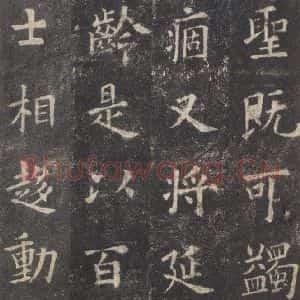 聖既可蠲
痼又將延
齡是以百
士相趍動
Shufawang.CN